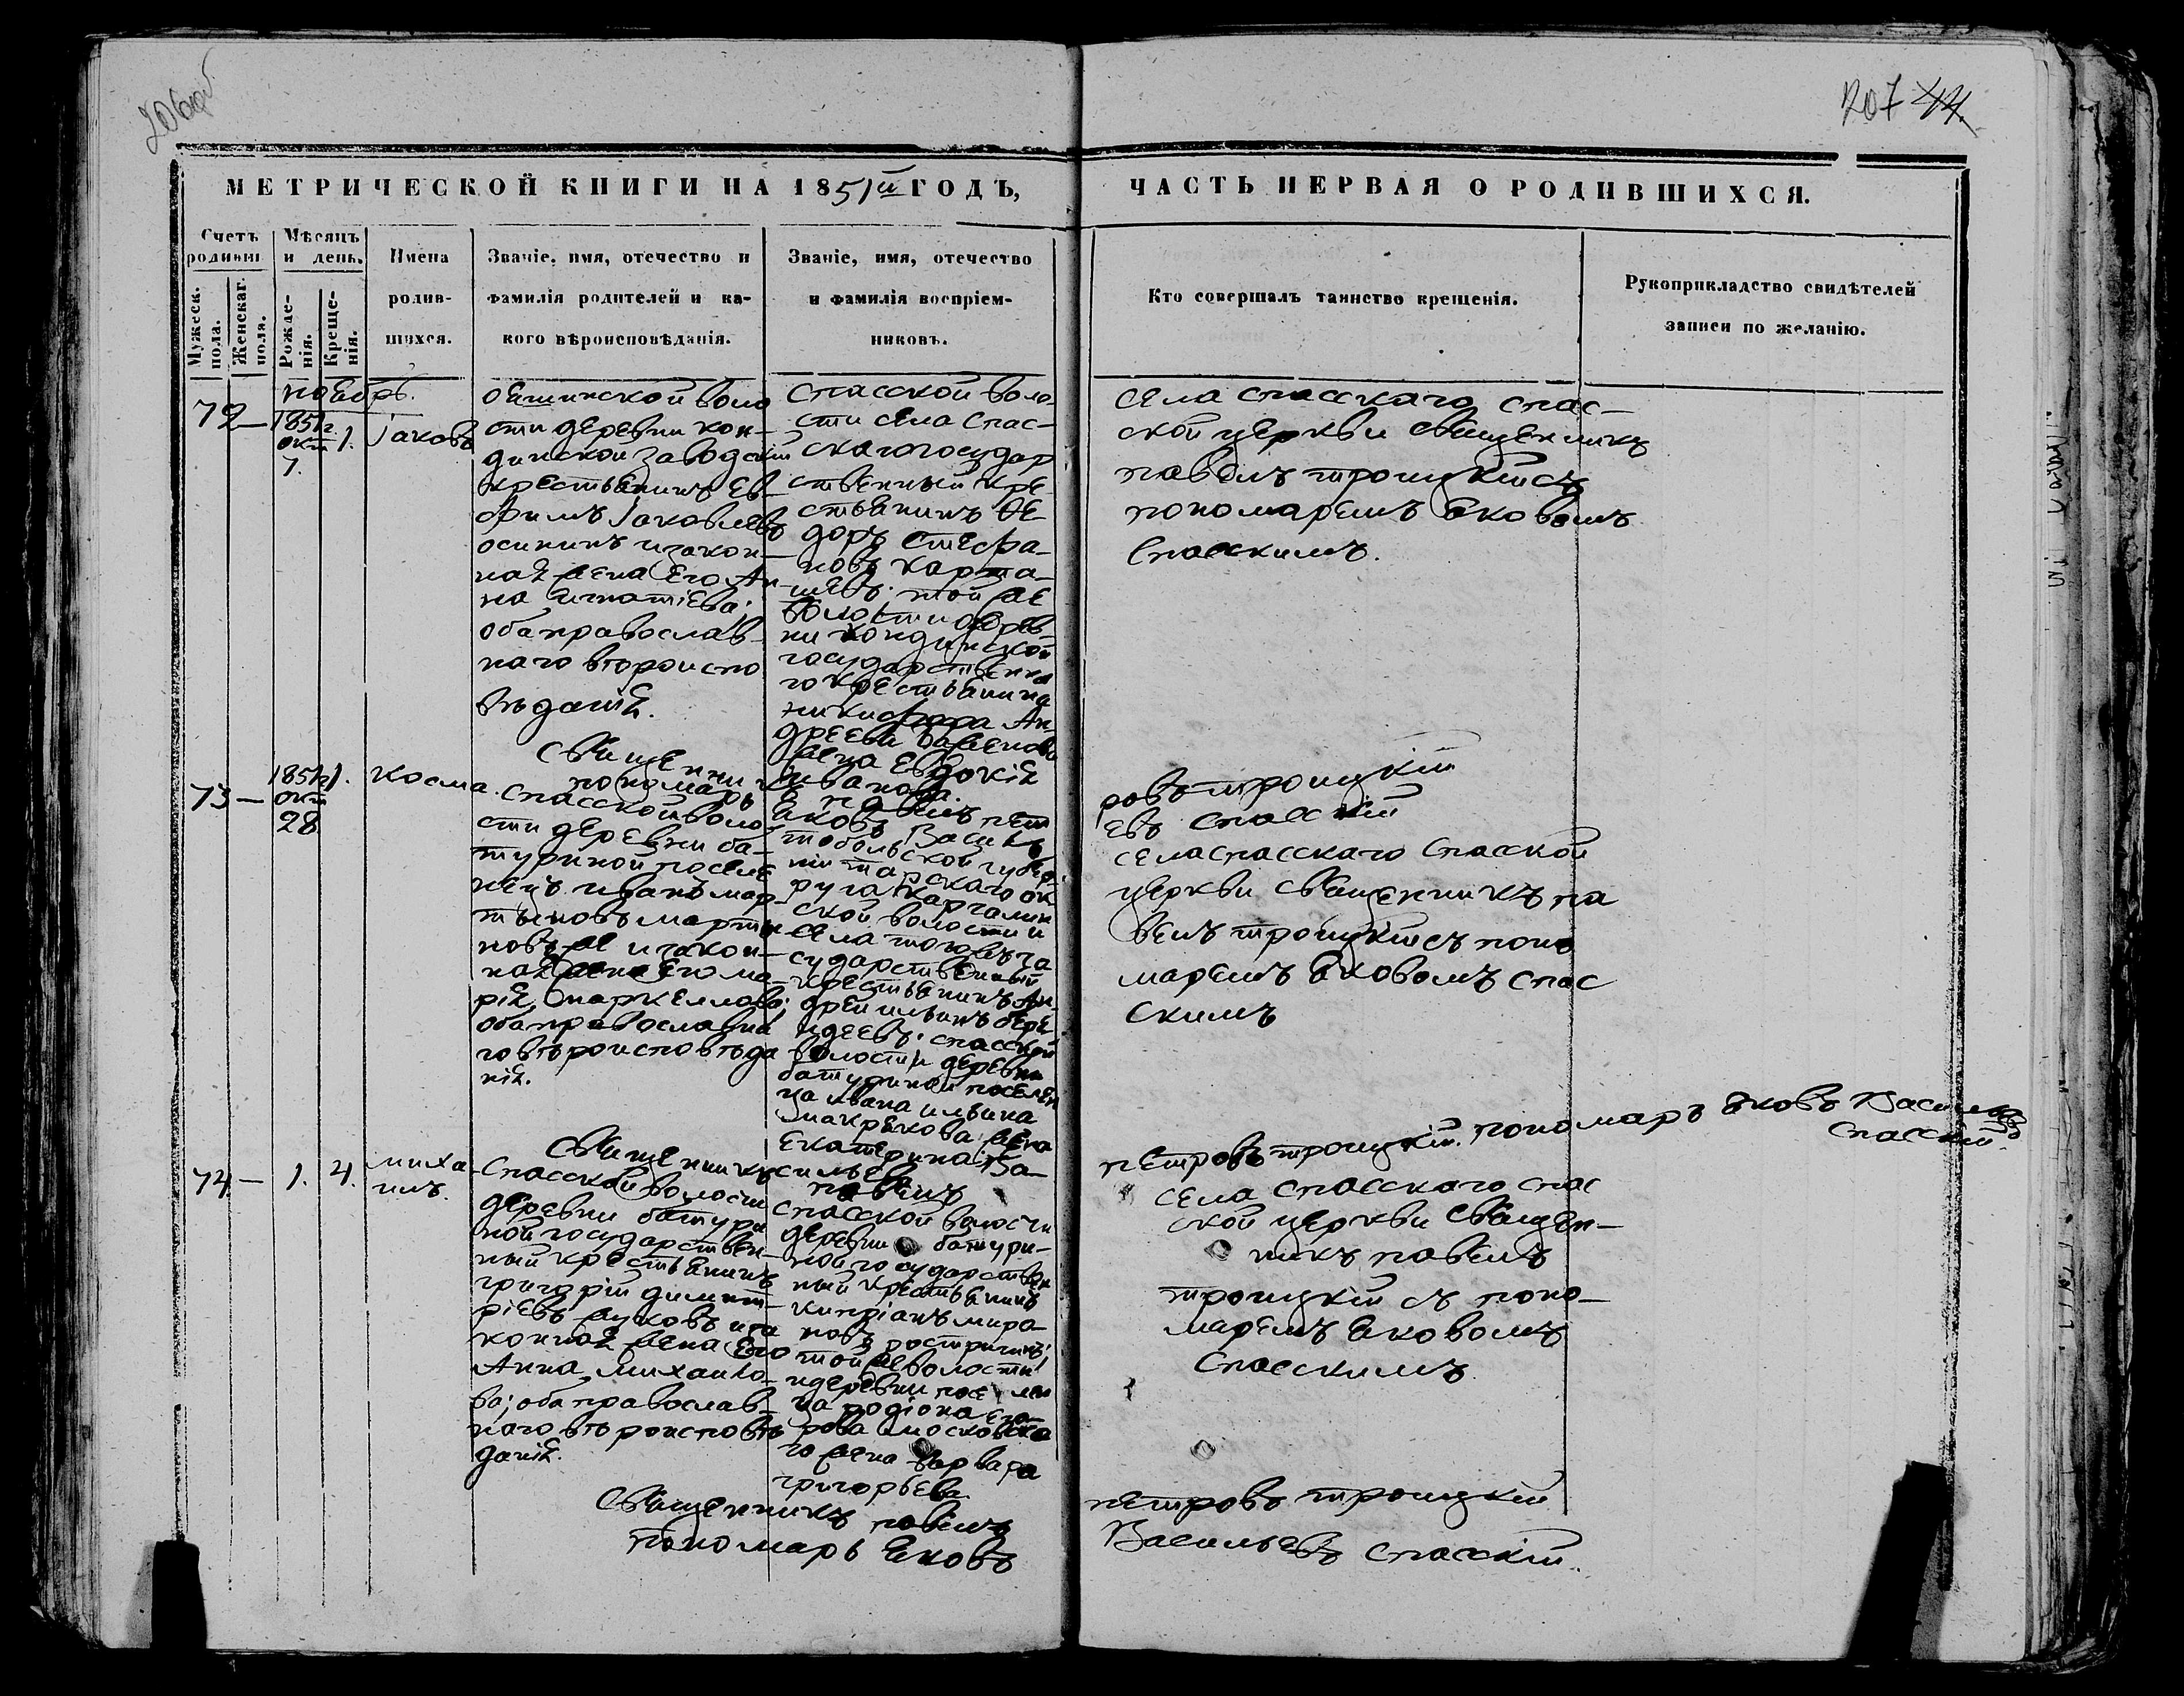 206об
207 44.
МЕТРИЧЕСКОЙ КНИГИ НА 1851й ГОДЪ,
ЧАСТЬ ПЕРВАЯ О РОДИВШИХСЯ.
Счетъ родивш.
Мужеск. пола.
Женскаг. пола.
Мѣсяцъ и день.
Рожде-
нія.
Креще-
нія.
Имена
родив-
шихся.
Званіе, имя, отечество и
фамилія родителей и ка-
кого вѣроисповѣданія.
Званіе, имя, отечество
и фамилія воспріем-
никовъ.
Кто совершалъ таинство крещенія.
Рукоприкладство свидѣтелей
записи по желанію.
ноябрь.
72 —
1851г.
окт
7.
1.
Іаковъ
волo
сти деревни кон-
динской заводскій
крестьянинъ Ев-
фимъ Іаковлевъ
осининъ и закон-
ная жена его Ан-
на Игнатіева;
оба православ-
наго вѣроиспо
вѣданія.
спасской воло-
сти села Спас-
скаго государ
ственный кре-
стьянинъ Ѳе
доръ Стефа-
новъ карта-
шевъ. той же
волости дерев-
ни кондинской
государственна
го крестьянина
никифора Ан-
дреева
жена Евдокія
Иванова.
села спасскаго спас-
ской церкви священникъ
павелъ троицкій съ
пономаремъ Яковомъ
Спасскимъ.
Священникъ павелъ пет
ровъ троицкій
пономарь Яковъ Василь
евъ Спасскій
73 —
1851г
окт
28
1.
Косма.
спасской воло
сти деревни ба-
туриной поселе
нецъ иванъ мар-
тыновъ марты
новъ же и закон-
ная жена его ма-
рія маркеллова;
оба православна
го вѣроисповѣда
нія.
тобольской губер
ніи тарскаго ок
руга Каргалин
ской волости и
села того же го
сударственный
крестьянинъ Ан-
дрей ильинъ
спасской
волости деревни
батуриной поселен
ца ивана ильина
макрякова жена
Екатерина Ва-
сильева
села спасскаго спасской
церкви священникъ па
велъ троицкій съ поно
маремъ Яковомъ спас
скимъ
Священникъ павелъ
петровъ троицкій. пономарь Яковъ Васильевъ
Спасскій
74 —
1.
4.
миха
илъ.
Спасской волости
деревни батури
ной государствен-
ный крестьянинъ
григорій димит-
ріевъ жуковъ и за
конная жена его
Анна михаило-
ва; оба православ-
наго вѣроисповѣ
данія.
спасской волости
деревни батури-
ной государствен
ный крестьянинъ
кипріанъ миро-
новъ
той же волости
и деревни поселен
ца родіона его-
рова московска
го жена варвара
григорьева.
села спасскаго спас
ской церкви священ-
никъ павелъ
троицкій съ поно-
маремъ Яковомъ
спасскимъ.
Священникъ павелъ
петровъ троицкій
пономарь Яковъ
Васильевъ спасскій.